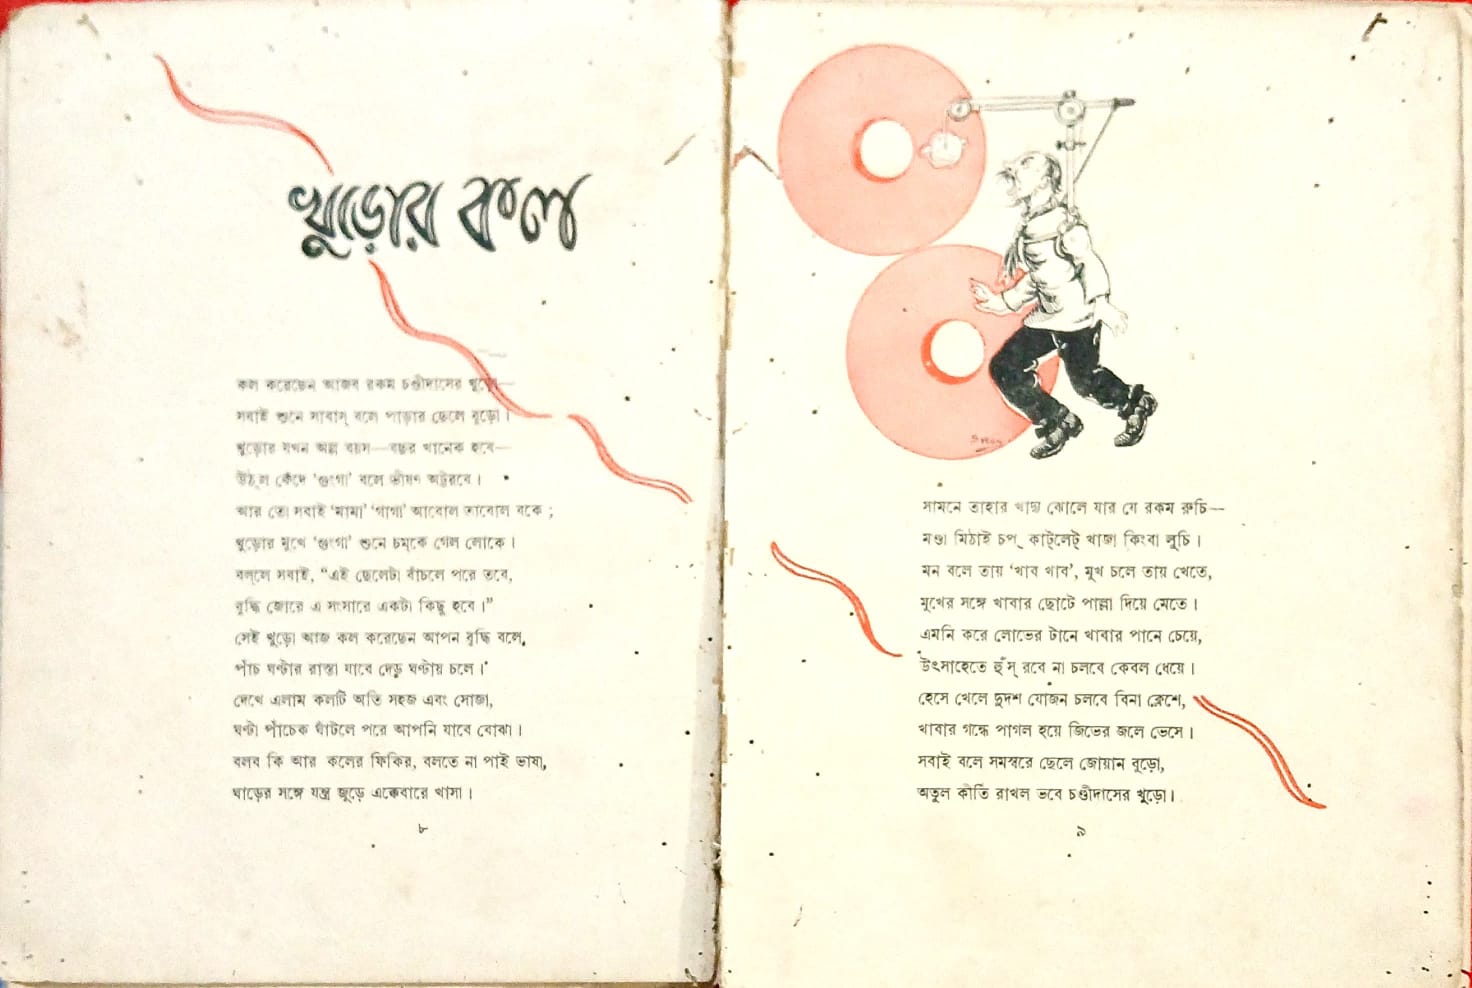 খুড়োর কল
কল করেছেন আজব রকম চণ্ডীদাসের খুড়ো—
সবাই শুনে সাবাস্ বলে পাড়ার ছেলে বুড়ো।
খুড়োর যখন অল্প বয়স—বছর খানেক হবে—
উঠ্‌ল কেঁদে ‘গুংগা’ বলে ভীষণ অট্টরবে।
আর তো সবাই ‘মামা’ ‘গাগা’ আবোল তাবোল বকে ;
খুড়োর মুখে ‘গুংগা’ শুনে চম্‌কে গেল লোকে।
বল্‌লে সবাই, “এই ছেলেটা বাঁচলে পরে তবে,
বুদ্ধি জোরে এ সংসারে একটা কিছু হবে।”
সেই খুড়ো আজ কল করেছেন আপন বুদ্ধি বলে,
পাঁচ ঘণ্টার রাস্তা যাবে দেড় ঘণ্টায় চলে।
দেখে এলাম কলটি অতি সহজ এবং সোজা,
ঘণ্টা পাঁচেক ঘাঁটলে পরে আপনি যাবে বোঝা।
বলব কি আর কলের ফিকির, বলতে না পাই ভাষা,
ঘাড়ের সঙ্গে যন্ত্র জুড়ে একেবারে খাসা।
৮
সামনে তাহার খাদ্য ঝোলে যার যে রকম রুচি—
মণ্ডা মিঠাই চপ্ কাট্‌লেট্ খাজা কিংবা লুচি।
মন বলে তায় ‘খাব খাব’, মুখ চলে তায় খেতে,
মুখের সঙ্গে খাবার ছোটে পাল্লা দিয়ে মেতে।
এমনি করে লোভের টানে খাবার পানে চেয়ে,
উৎসাহেতে হুঁস্ রবে না চলবে কেবল ধেয়ে।
হেসে খেলে দুদশ যোজন চলবে বিনা ক্লেশে,
খাবার গন্ধে পাগল হয়ে জিভের জলে ভেসে।
সবাই বলে সমস্বরে ছেলে জোয়ান বুড়ো,
অতুল কীর্তি রাখল ভবে চণ্ডীদাসের খুড়ো।
৯